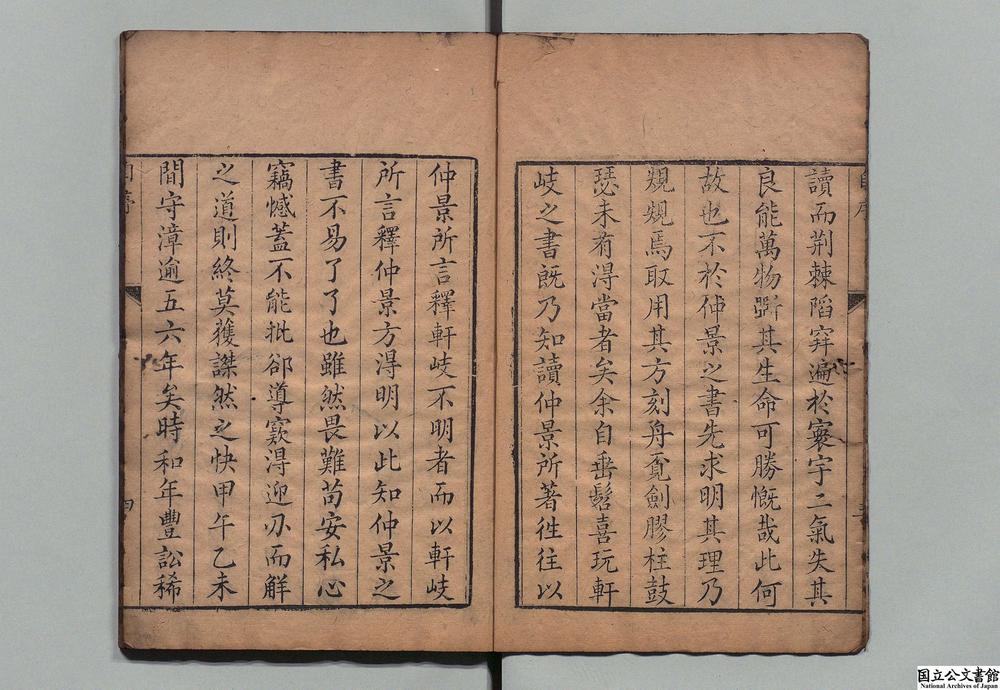 讀而荆棘陷穽遍於寰宇二氣失其
良能萬物斲其生命可勝慨哉此何
故也不於仲景之書先求明其理乃
䂓䂓焉取用其方刻舟覔劍膠柱鼓
瑟未有得當者矣余自垂髫喜玩軒
岐之書旣乃知讀仲景所著徃徃以
仲景所言釋軒岐不明者而以軒岐
所言釋仲景方得明以此知仲景之
書不易了了也雖然畏難苟安私心
竊憾蓋不能批郤導窾得迎刃而解
之道則終莫獲謋然之快甲午乙未
間守漳逾五六年矣時和年豐訟稀
自序
四
国立公文書館
National Archives of Japan